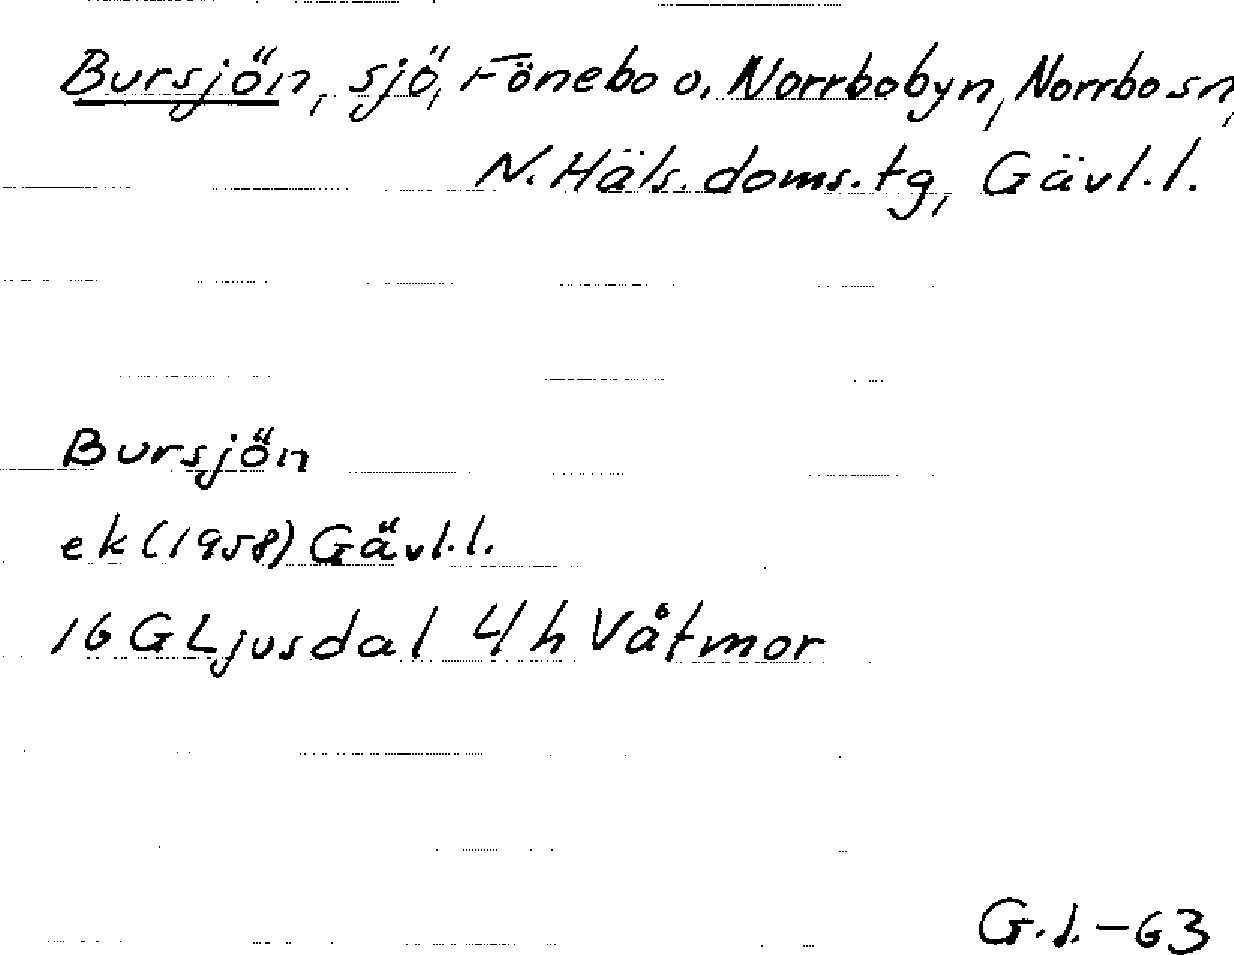 Bursjön, sjö, Fönebo o. Norrbobyn, Norrbo sn,
N. Häls. doms. tg, Gävl. l.
Bursjön
ek (1958) Gävl. l.
16 G Ljusdal 4 h Våtmor
G. l. - 63